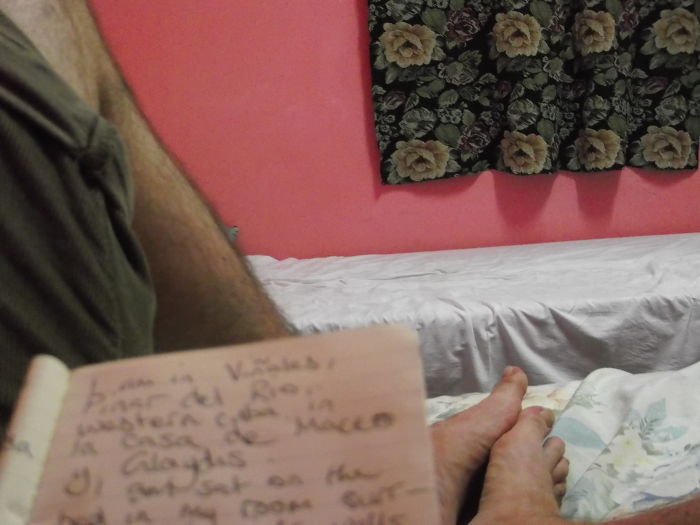 I am in Viñales,
Pinar del Rio,
western Cuba in
la casa de Maceo
y Gladys
I sat on the
bed in my room
walls